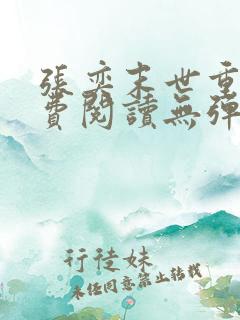 張奕末世重
費閱讀無彈
行徒妹
未经同意禁止转载